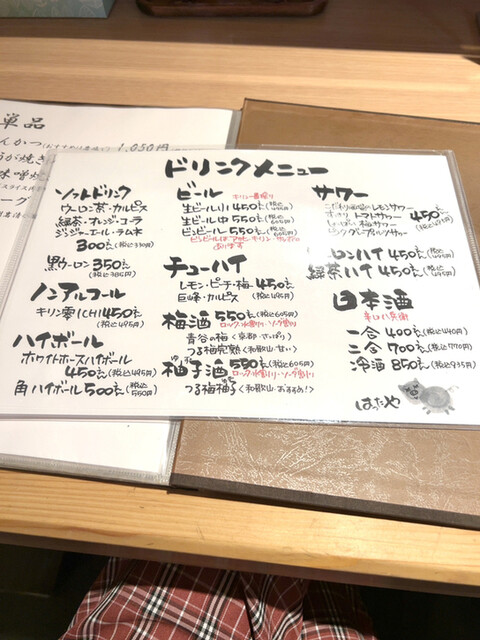 単品
1,050円
ドリンクメニュー
ソフトドリンク
ウーロン茶・カルピス
緑茶・オレンジ・コーラ
ジンジャーエール・ラムネ
300えん(税込330円)
黒ウーロン 350えん
(税込385円)
ノンアルコール
キリン零ICHI 450えん
(税込495円)
ハイボール
ホワイトホースハイボール
450えん(税込495円)
角ハイボール 500えん(税込550円)
ビール
生ビール小 450えん(税込495円)
生ビール中 550えん(税込605円)
ビンビール 550えん(税込605円)
あります
チューハイ
レモン・ピーチ・梅 450えん
巨峰・カルピス (税込495円)
梅酒 550えん(税込605円)
ロック・水割り・ソーダ割り
青谷の梅 <京都・さっぱり>
つる梅完熟 <和歌山・甘い>
柚子酒 550えん(税込605円)
ロック・水割り・ソーダ割り
つる梅柚子 <和歌山・おすすめ!>
サワー
トマトサワー
450えん
ロンハイ 450えん(税込495円)
緑茶ハイ 450えん(税込495円)
日本酒
一合 400えん(税込440円)
二合 700えん(税込770円)
冷酒 850えん(税込935円)
ほったや